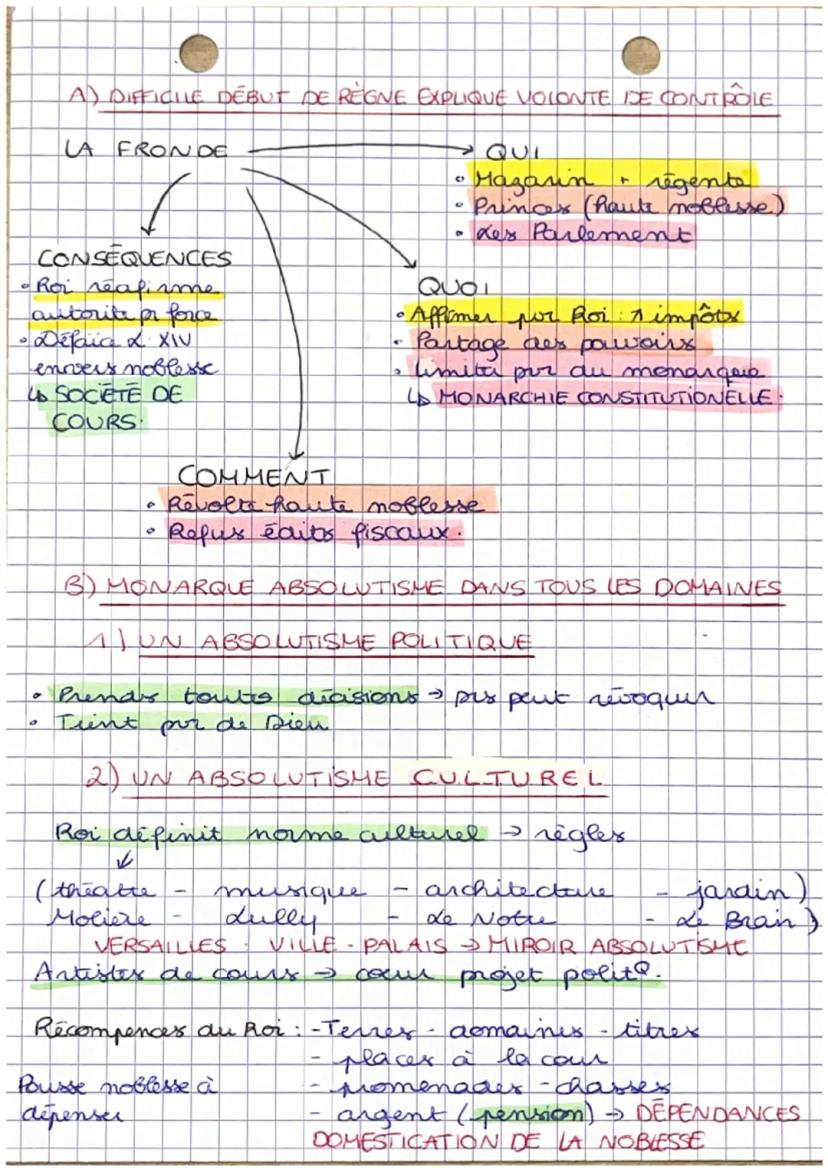 A) DIFFICILE DÉBUT DE RÈGNE EXPLIQUE VOLONTE DE CONTRÔLE
LA FRONDE
QUI
• Mazarin + régente
• Princes (haute noblesse)
• Les Parlement
CONSÉQUENCES
• Roi réafirme
autorité pr force
• Défaice L. XIV
envers noblesse
↳ SOCIÉTÉ DE
COURS.
QUOI
• Affirmer pvr Roi : ↗ impôts
• Partage des pouvoirs
• limiter pvr du monarque
↳ MONARCHIE CONSTITUTIONELLE.
COMMENT
• Révolte haute noblesse
• Refus édits fiscaux.
B) MONARQUE ABSOLUTISME DANS TOUS LES DOMAINES
1) UN ABSOLUTISME POLITIQUE
• Prends toutes décisions → pvs peut révoquer
• Tient pvr de Dieu
2) UN ABSOLUTISME CULTUREL
Roi définit norme culturel → règles
(théatre - musique - architecture - jardin)
Molière - Lully - Le Notre - Le Bran)
VERSAILLES : VILLE-PALAIS → MIROIR ABSOLUTISME
Artistes de cours → coeur projet politQ.
Récompences du Roi : - Terres - domaines - titres
- places à la cour
Pousse noblesse à - promenades - chasses
dépenser - argent (pension) → DÉPENDANCES
DOMESTICATION DE LA NOBLESSE